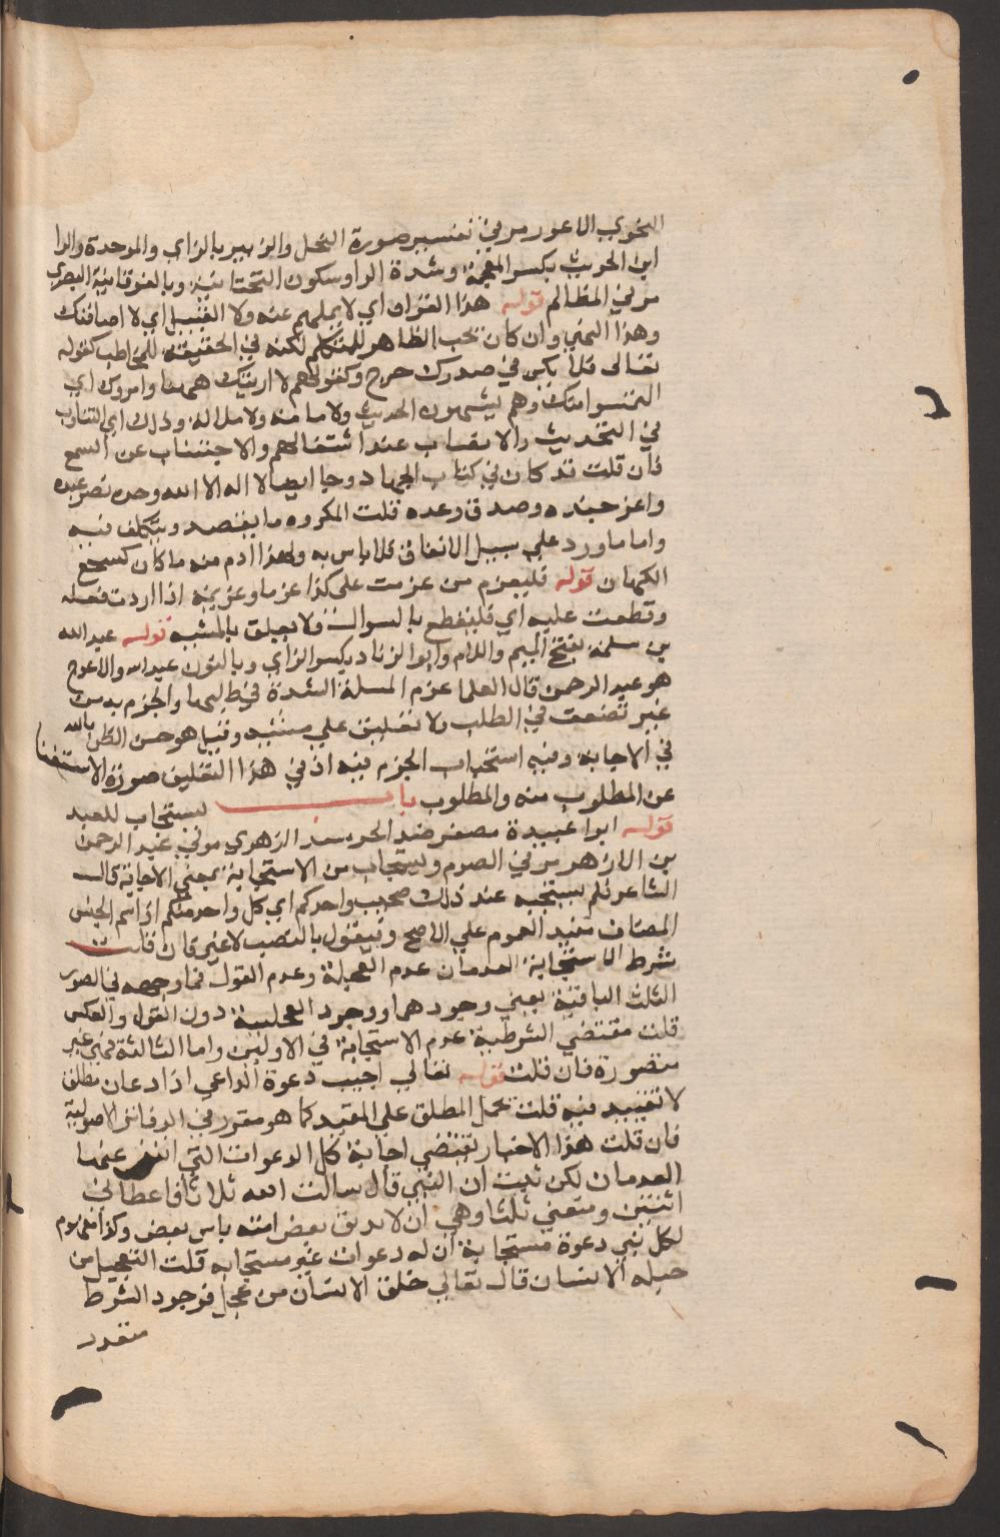 النحوي الاعور مر في تفسير صورة النحل والزبير بالزاي والموحدة والرا
ابن الخريت بكسر المعجمة وشدة الرا وسكون التحتانية وبالفوقانية البصري
مر في المظالم قوله هذا القران اي لا يملهم عنه ولا الفينك اي لا اصادفنك
وهذا النهي وان كان بحسب الظاهر للمتكلم لكنه في الحقيقة للمخاطب كقوله
تعالى فلا يكن في صدرك حرج وكقولهم لا ارينك ههنا وامروك اي
التمسوا منك وهم يشتهون الحديث ولا سامة ولا ملالة وذلك اي التناوب
في التحديث والانصات عند اشتغالهم والاجتناب عن السجع
فان قلت قد كان في كتاب الجهاد وجا ايضا لا اله الا الله وحده نصر عبده
واعز جنده وصدق وعده قلت المكروه ما يقصد ويتكلف فيه
واما ما ورد علي سبيل الاتفاق فلا باس به ولهذا ذم منه ما كان كسجع
الكهان قوله فليعزم من عزمت على كذا عزما وعزيمة اذا اردت فعله
وقطعت عليه اي فليقطع بالسوال ولا يعلق بالمشية قوله عبد الله
بن سلمة بفتح الميم واللام وابو الزناد بكسر الزاي وبالنون عبد الله والاعرج
هو عبد الرحمن قال العلما عزم المسلة الشدة في طلبها والجزم به من
غير تضعف في الطلب ولا تعليق علي مشية وقيل هو حسن الظن بالله
في الاجابة وفيه استحباب الجزم فيه اذ في هذا التعليق صورة الاستغنا
عن المطلوب منه والمطلوب باب يستجاب للعبد
قوله ابوا عبيدة مصغر ضد الحرة سعد الزهري مولي عبد الرحمن
بن الازهر مر في الصوم ويستجاب من الاستجابة بمعني الاجابة قال
الشاعر فلم يستجبه عند ذلك مجيب واحدكم اي كل واحد منكم اذ اسم الجنس
المضاف مفيد العموم علي الاصح وفيقول بالنصب لا غير فان قلت
شرط الاستجابة العدمان عدم العجلة وعدم القول فما وجهه في الصور
الثلث الباقية يعني وجودهما ووجود العجلة دون القول والعكس
قلت مقتضي الشرطية عدم الاستجابة في الاوليين واما الثالثة فهي غير
متصورة فان قلت قوله تعالي اجيب دعوة الداعي اذا دعان مطلق
لا تقييد فيه قلت يحمل المطلق علي المقيد كما هو مقرر في الدفاتر الاصولية
فان قلت هذا الاخبار يقتضي اجابة كل الدعوات التي انتفي عنها
العدمان لكن ثبت ان النبي قال سالت الله ثلاثا فاعطاني
اثنتين ومنعني ثلثا وهي ان لا يذيق بعض امته باس بعض وكذا مفهوم
لكل نبي دعوة مستجابة ان له دعوات غير مستجابة قلت التعجيل من
جبلة الانسان قال تعالي خلق الانسان من عجل فوجود الشرط
متعذر